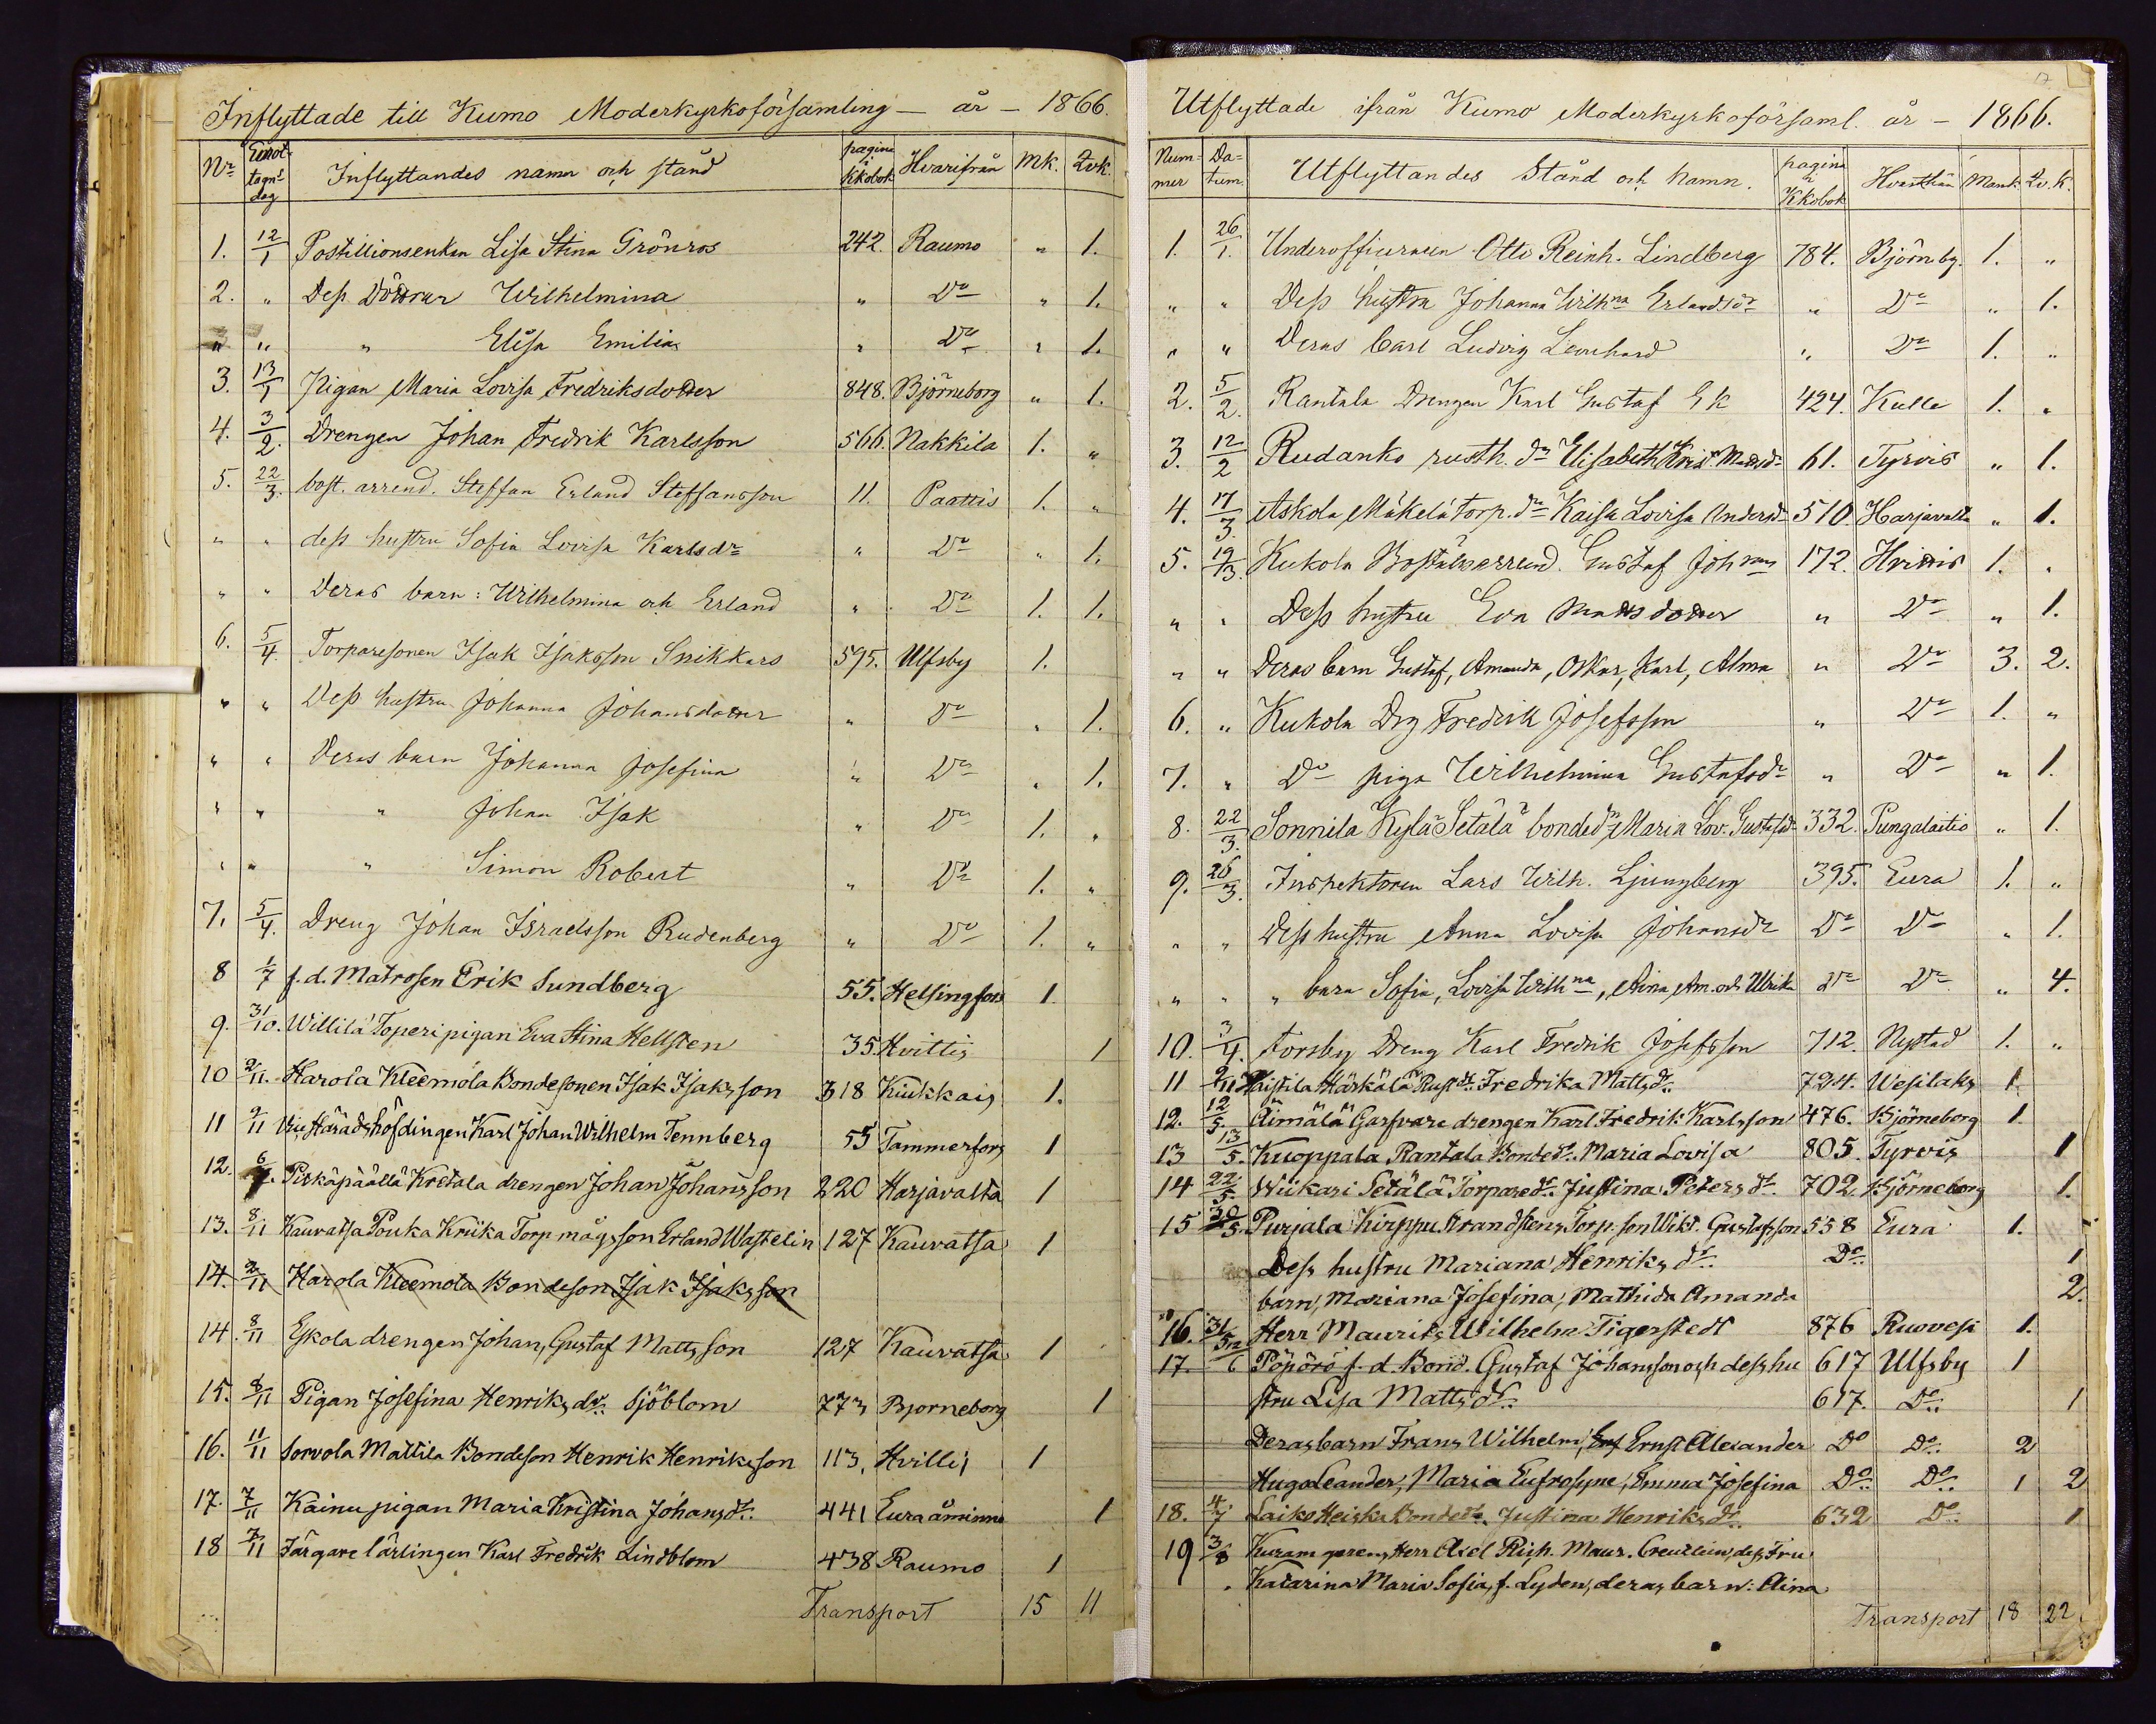 Inflyttade till Kumo Moderkyrkoförsamling — år — 1866.
Nr Emottagn: dag Inflyttandes namn och stånd pagina i Kkobok Hvarifrån Mk. Qvk.
1. 12/1 Postillionsenkan Lisa Stina Grönros 242. Raumo " 1.
2. " Dess Döttrar Wilhelmina " Do " 1.
" " " Elisa Emilia " Do " 1.
3. 13/1 Pigan Maria Lovisa Fredriksdotter 848. Björneborg " 1.
4. 3/2. Drengen Johan Fredrik Karlsson 566. Nakkila 1. "
5. 22/3. bost. arrend. Steffan Erland Steffansson 11. Paattis 1. "
" " dess hustru Sofia Lovisa Karlsdr " Do " 1.
" " Deras barn: Wilhelmina och Erland " Do 1. 1.
6. 5/4. Torparesonen Isak Isaksson Snikkars 595. Ulfsby 1.
" " Dess hustru Johanna Johansdotter " Do " 1.
" " Deras barn Johanna Josefina " Do " 1.
" " " Johan Isak " Do 1. "
" " " Simon Robert " Do 1. "
7. 5/4. Dreng Johan Israelsson Rudenberg " Do 1. "
8 1/7 f.d. Matrosen Erik Sundberg 55. Helsingfors 1.
9. 31/10. Willilä Toperi pigan Eva Stina Hellsten 35 Hvittis 1
10 2/11. Harola Kleemola Bondesonen Isak Isaksson 318 Kiukkais 1.
11 2/11 Vice Häradshöfdingen Karl Johan Wilhelm Tennberg 55 Tammerfors 1
12. 6/7. Piskäpäällä Kretala drengen Johan Johansson 220 Harjavalta 1
13. 8/11 Kauvatsa Pouka Kriika Torp mågsson Erland Wastelin 127 Kauvatsa 1
14. 2/11 Harola Kleemola Bondeson Isak Isaksson
14. 8/11 Yskola drengen Johan, Gustaf Mattsson 127 Kauvatsa 1
15. 8/11 Pigan Josefina Henriks dr. Sjöblom 773 Bjorneborg 1
16. 11/11 Sorvola Mattila Bondeson Henrik Henriksson 113, Hvittis 1
17. 7/11 Käinu pigan Maria Kristina Johansdr. 441 Eura åminne 1
18 7/11 Färgare lärlingen Karl Fredrik Lindblom 438 Raumo 1
Transport 15 11
Utflyttade ifrån Kumo Moderkyrkoförsaml. år — 1866.
Nummer Datum. Utflyttandes Stånd och Namn. pagina i Kkobok Hvarthän Mank. Qv.K.
1. 26/1. Underofficeraren Otto Reinh. Lindberg 784. Björnebg. 1. "
" " Dess hustru Johanna Wilhna Erlandsdr " Do " 1.
" " Deras barn Ludvig Leonhard " Do 1. "
2. 5/2. Rantala Drengen Karl Gustaf Ek 424. Kulla 1. "
3. 12/2 Rudanko rusth. dr Elisabeth Krist. Mattsdr 61. Tyrvis " 1.
4. 17/3. Askola Mäkelä torp. dr Kaisa Lovisa Andersdr 510 Harjavalta " 1.
5. 19/3. Kukola Boställsarrend. Gustaf Johnsson 172. Hvittis 1. "
" " Dess hustru Eva Mattsdotter " Do " 1.
" " Deras barn Gustaf, Amanda, Oskar, Karl, Alma " Do 3. 2.
6. " Kukola Drg Fredrik Josefsson " Do 1. "
7. " Do piga Wilhelmina Gustafsdr " Do " 1.
8. 22/3. Sonnila Kylä-Setälä bondedr Maria Lov. Gustafsdr 332. Pungalaitio " 1.
9. 26/3. Inspektoren Lars Wilh. Ljungberg 395. Eura 1. "
" " Dess hustru Anna Lovisa Johansdr Do Do " 1.
" " " barn Sofia, Lovisa Wilhna, Aina, Am. och Ulrika Do Do " 4.
10. 3/4. Forsby Dreng Karl Fredrik Josefsson 712. Nystad 1. "
11 2/11 Ristila Härkälä Rust dr. Fredrika Matts dr. 724. Wesilaks 1
12. 12/5. Äimälä Garfvare drengen Karl Fredrik Karlsson 476. Björneborg 1.
13 13/5. Kuoppala Rantala Bondedr. Maria Lovisa 805. Tyrvis 1
14 22/5 Wiikari Setälä Torparedr. Justina Peters dr. 702. Björneborg 1.
15 30/5. Purjala Kirppu Strandstens Torp. son Wikt. Gustafsson 558 Eura 1.
Dess hustru Mariana Henriks dr. Do 1
barn, Mariana Josefina, Mathida Amanda 2.
16. 31/5 Herr Maurits Wilhelm Tigerstedt 876 Ruovesi 1.
17. 6 Pöpörö f.d. Bond. Gustaf Johansson och dess hu 617 Ulfsby 1
stru Lisa Matts dr. 617. Do 1
Deras barn Frans Wilhelm, Ernst Alexander Do Do 2
Hugo Leander, Maria Eufrosyne, Emma Josefina Do Do 1 2
18. 4/7 Laiko Heiska Bondedr. Justina Henriks dr. 632 Do 1
19 3/8 Herr Axel Rich. Maur. Creutlein, dess Fru
Katarina Maria Sofia, f. Lyden, deras barn: Aina
Transport 18 22